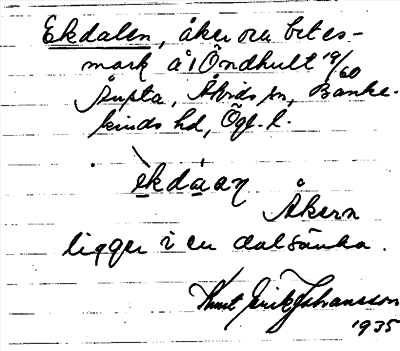 Ekdalen, åker o betes-
mark å Öndhult 19/60
Åtvids sn, Banke-
kinds hd, Ögl. l.
èkdáan
Åkern
ligger i en dalsänka.
Knut Erik Johansson
1935